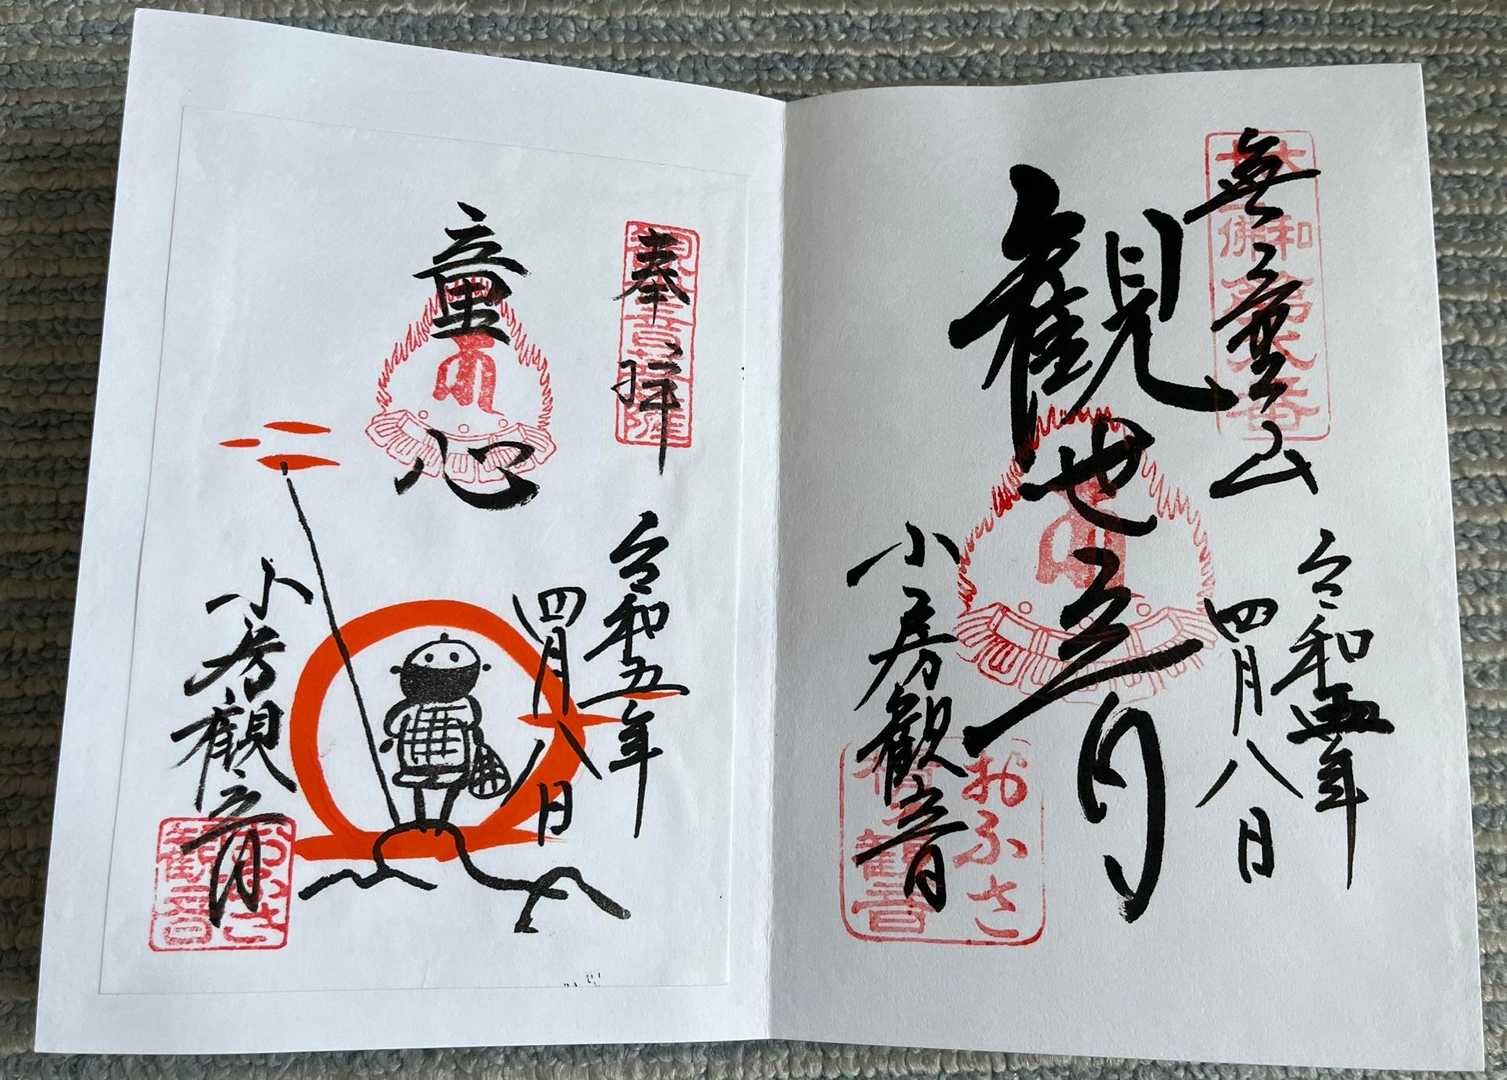 無量山
大和
十三佛
第六番
観世音
令和五年
四月八日
小房観音
おふさ
観音
奉拝
童心
令和五年
四月八日
小房観音
おふさ
観音